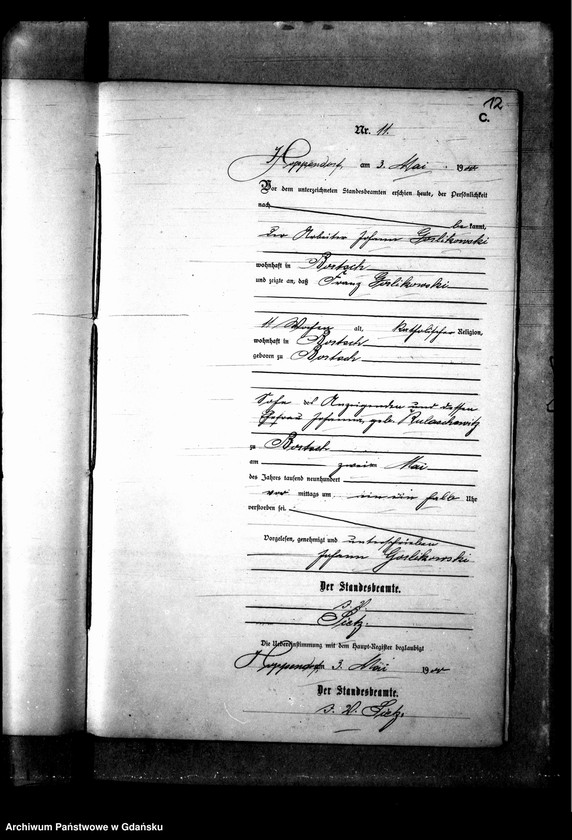 12
C.
Nr. 11.
Hoppendorf, am 3. Mai 1900
Vor dem unterzeichneten Standesbeamten erschien heute, der Persönlichkeit
nach
be kannt,
der Arbeiter Johann Gorlikowski
wohnhaft in Bortsch
und zeigte an, daß Franz Gorlikowski
11 Wochen alt, katholischer Religion,
wohnhaft in Bortsch
geboren zu Bortsch
Sohn des Anzeigenden und dessen
Ehefrau Johanna, geb.
zu Bortsch
am zweiten Mai
des Jahres tausend neunhundert
vor mittags um ein halb Uhr
verstorben sei.
Vorgelesen, genehmigt und unterschrieben
Johann Gorlikowski
Der Standesbeamte.
i. V.
Die Uebereinstimmung mit dem Haupt-Register beglaubigt
Hoppendorf, 3. Mai 1900
Der Standesbeamte.
i. V.
Archiwum Państwowe w Gdańsku